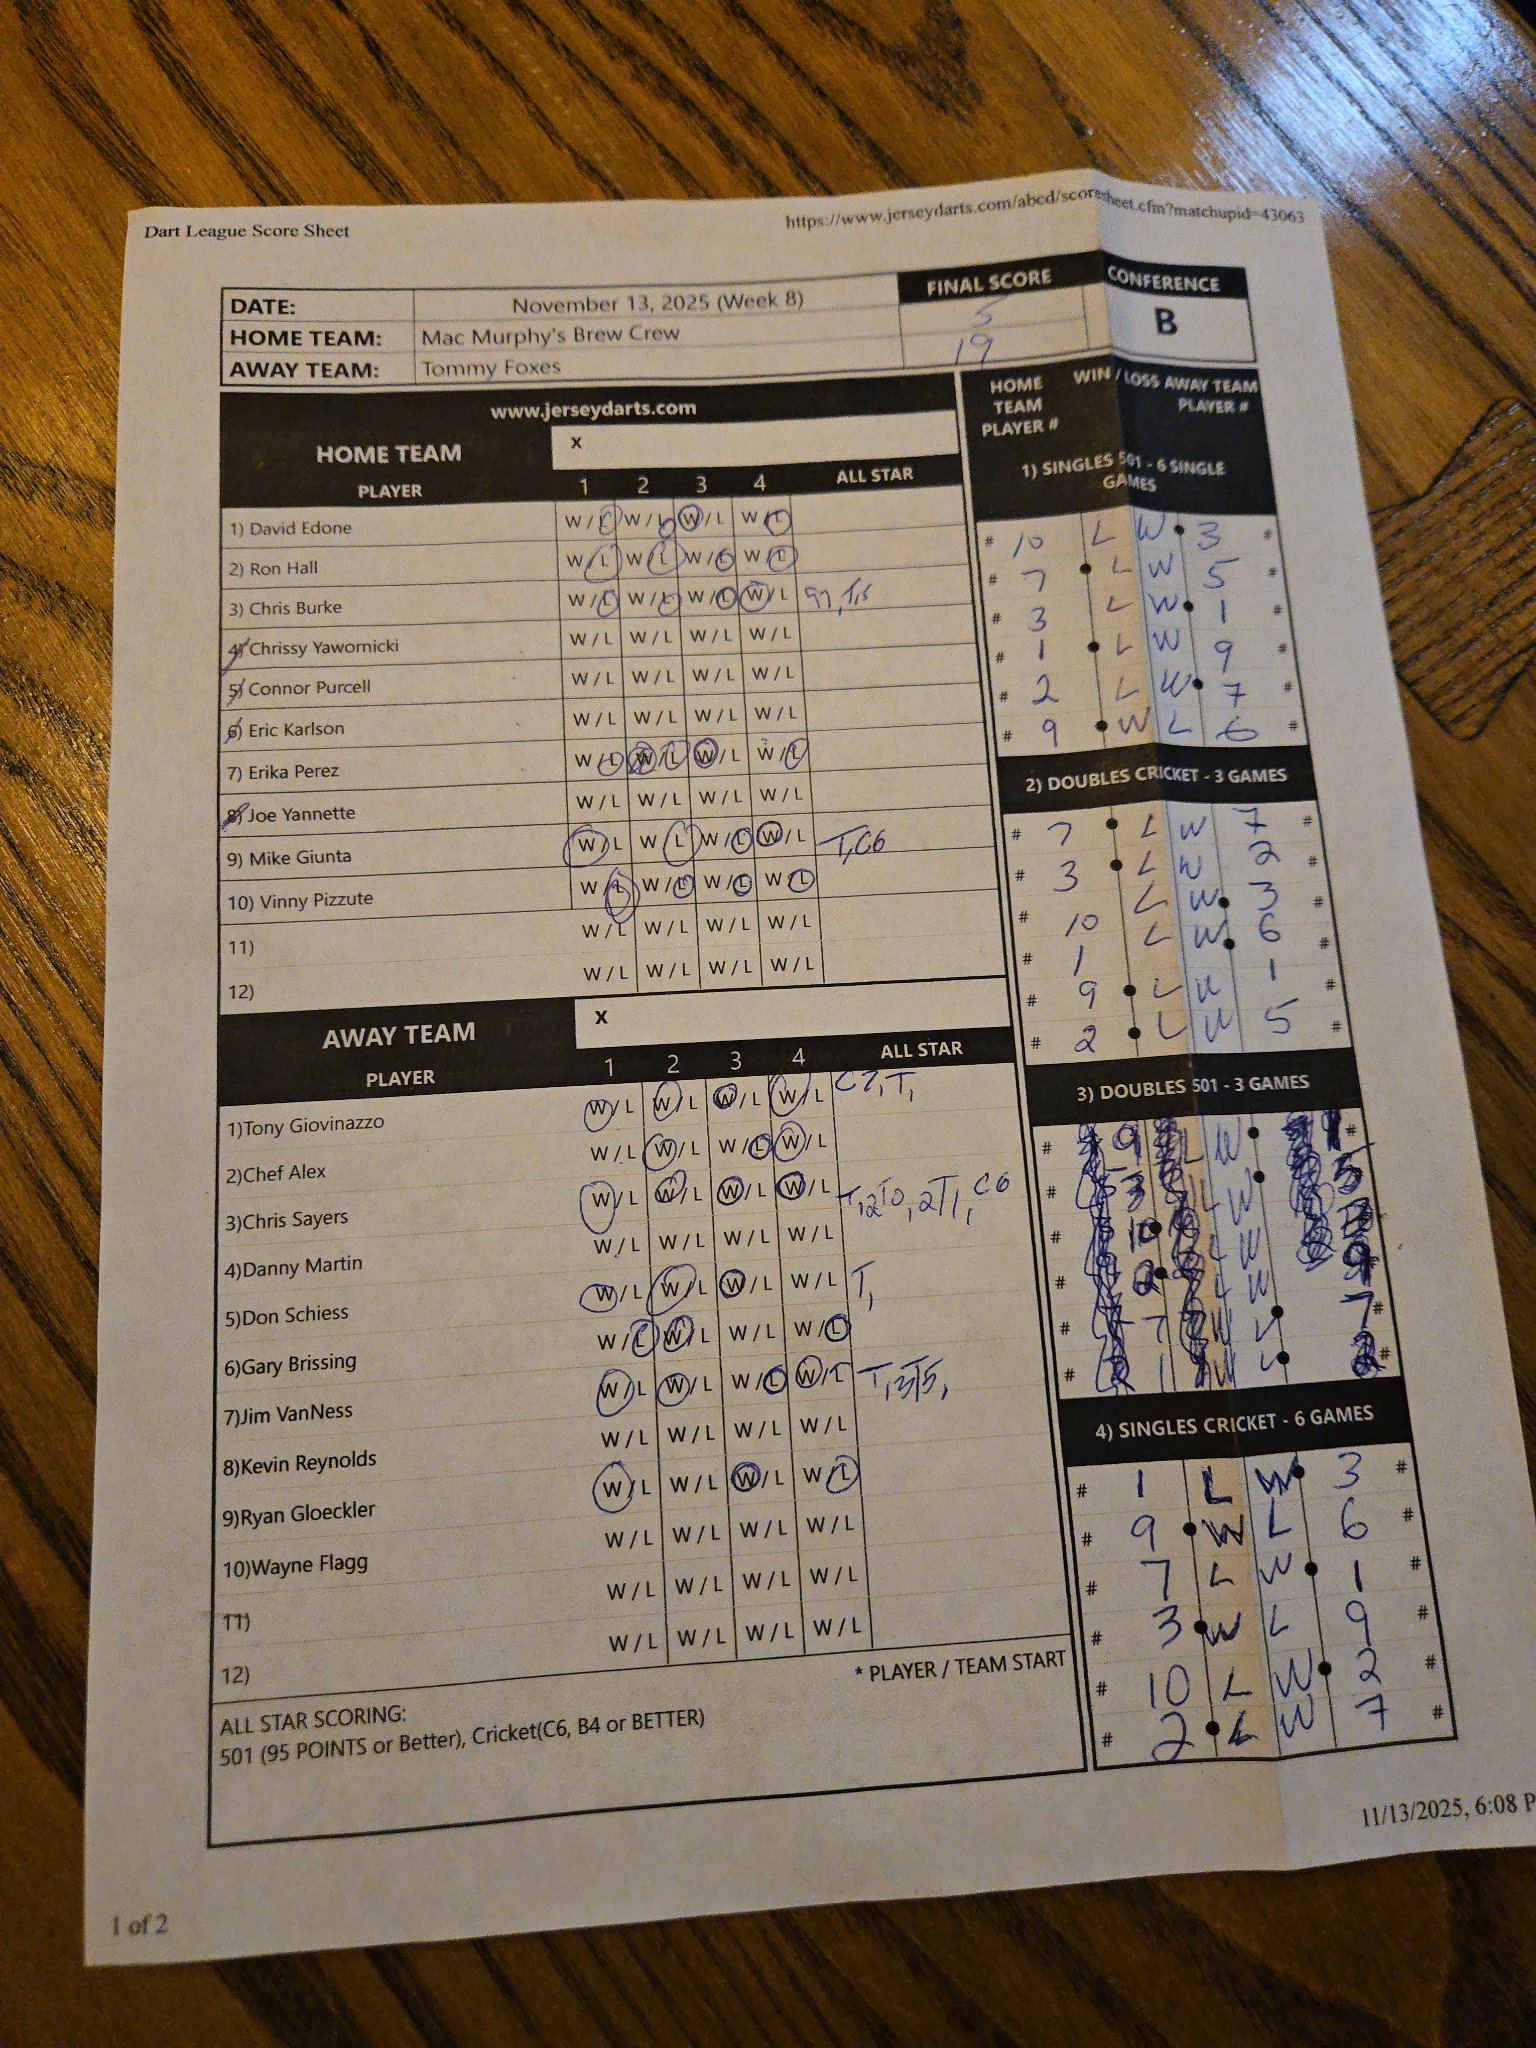 Dart League Score Sheet
https://www.jerseydarts.com/abcd/scoresheet.cfm?matchupid=43063
DATE: November 13, 2025 (Week 8) FINAL SCORE CONFERENCE
HOME TEAM: Mac Murphy's Brew Crew 5 B
AWAY TEAM: Tommy Foxes 19
www.jerseydarts.com
HOME TEAM x
PLAYER 1 2 3 4 ALL STAR
1) David Edone W/L W/L W/L W/L
2) Ron Hall W/L W/L W/L W/L
3) Chris Burke W/L W/L W/L W/L
4) Chrissy Yawornicki W/L W/L W/L W/L
5) Connor Purcell W/L W/L W/L W/L
6) Eric Karlson W/L W/L W/L W/L
7) Erika Perez W/L W/L W/L W/L
8) Joe Yannette W/L W/L W/L W/L
9) Mike Giunta W/L W/L W/L W/L T,C6
10) Vinny Pizzute W/L W/L W/L W/L
11) W/L W/L W/L W/L
12) W/L W/L W/L W/L
AWAY TEAM x
PLAYER 1 2 3 4 ALL STAR
1)Tony Giovinazzo W/L W/L W/L W/L C7, T,
2)Chef Alex W/L W/L W/L W/L
3)Chris Sayers W/L W/L W/L W/L
4)Danny Martin W/L W/L W/L W/L
5)Don Schiess W/L W/L W/L W/L T,
6)Gary Brissing W/L W/L W/L W/L
7)Jim VanNess W/L W/L W/L W/L
8)Kevin Reynolds W/L W/L W/L W/L
9)Ryan Gloeckler W/L W/L W/L W/L
10)Wayne Flagg W/L W/L W/L W/L
11) W/L W/L W/L W/L
12) W/L W/L W/L W/L
* PLAYER / TEAM START
ALL STAR SCORING:
501 (95 POINTS or Better), Cricket(C6, B4 or BETTER)
HOME TEAM PLAYER # WIN / LOSS AWAY TEAM PLAYER #
1) SINGLES 501 - 6 SINGLE
GAMES
# 10 L W 3 #
# 7 L W 5 #
# 3 L W 1 #
# 1 L W 9 #
# 2 L W 7 #
# 9 W L 6 #
2) DOUBLES CRICKET - 3 GAMES
# 7 L W 7 #
# 3 L W 2 #
# 10 L W 3
# 1 L W 6 #
# 9 L W 1 #
# 2 L W 5 #
3) DOUBLES 501 - 3 GAMES
# 9 L W 1 #
# 3 L W 5 #
# 10 L W #
# 2 L W 9 #
# 7 W L 7 #
# 1 W L 2 #
4) SINGLES CRICKET - 6 GAMES
# 1 L W 3 #
# 9 W L 6 #
# 7 L W 1 #
# 3 W L 9 #
# 10 L W 2 #
# 2 L W 7 #
11/13/2025, 6:08 P
1 of 2